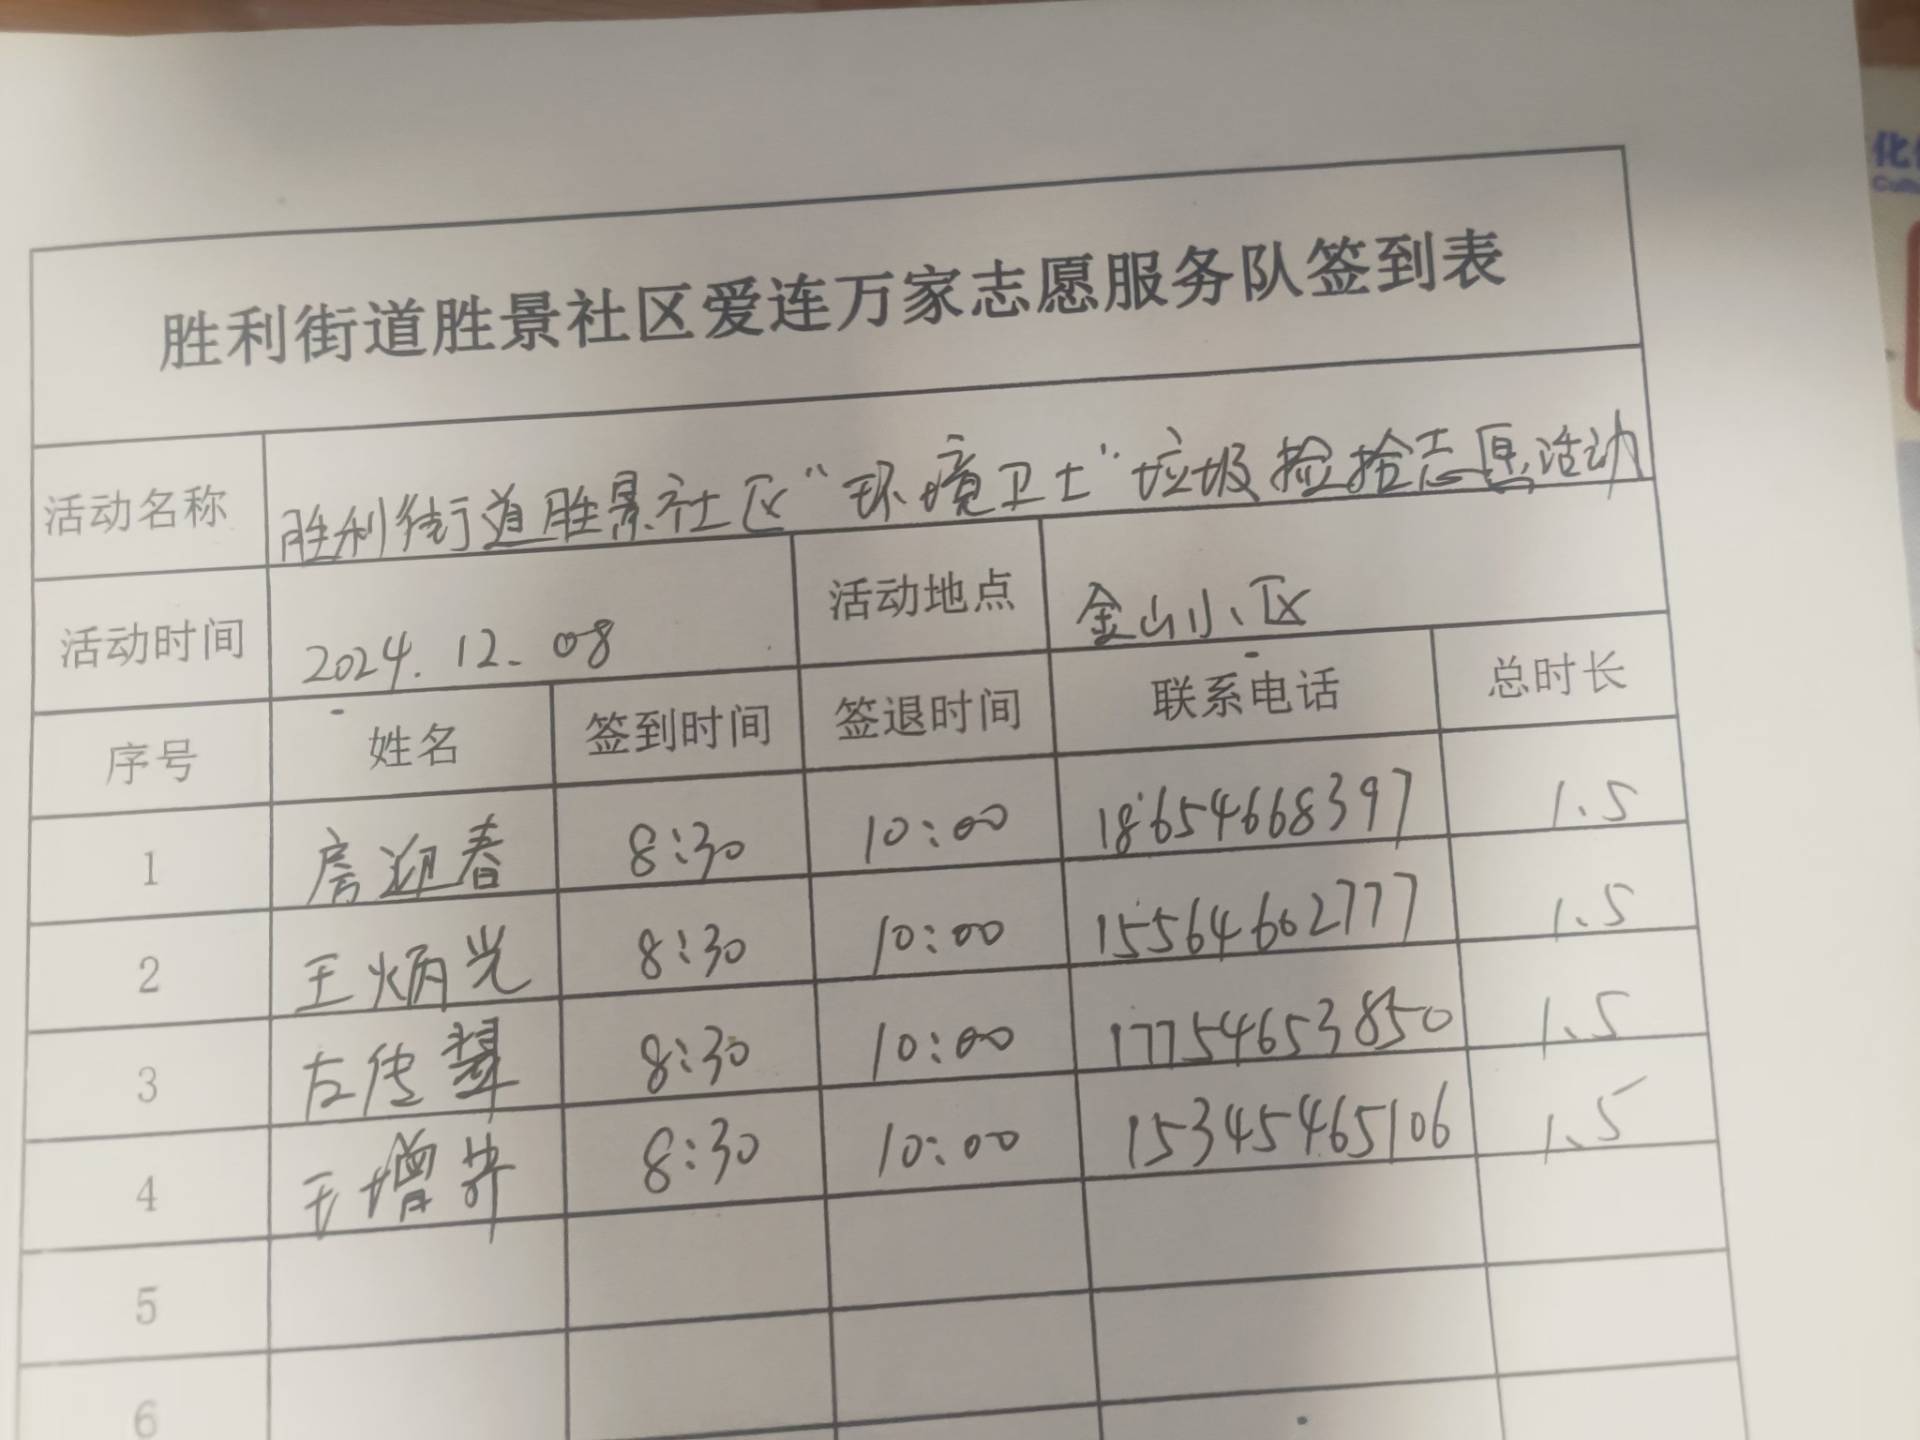 胜利街道胜景社区爱连万家志愿服务队签到表
活动名称 胜利街道胜景社区“环境卫士”垃圾捡拾志愿活动
活动时间 2024.12.08 活动地点 金山小区
序号 姓名 签到时间 签退时间 联系电话 总时长
1 房迎春 8:30 10:00 18654668397 1.5
2 王炳光 8:30 10:00 15564662777 1.5
3 左传翠 8:30 10:00 17754653850 1.5
4 王增井 8:30 10:00 15345465106 1.5
5
6
化
Cult